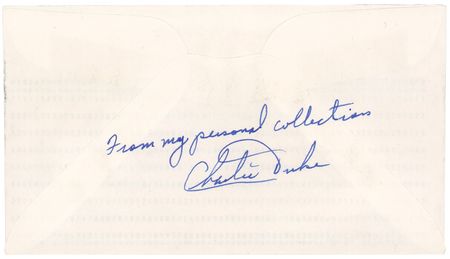 From my personal collection
Charlie Duke